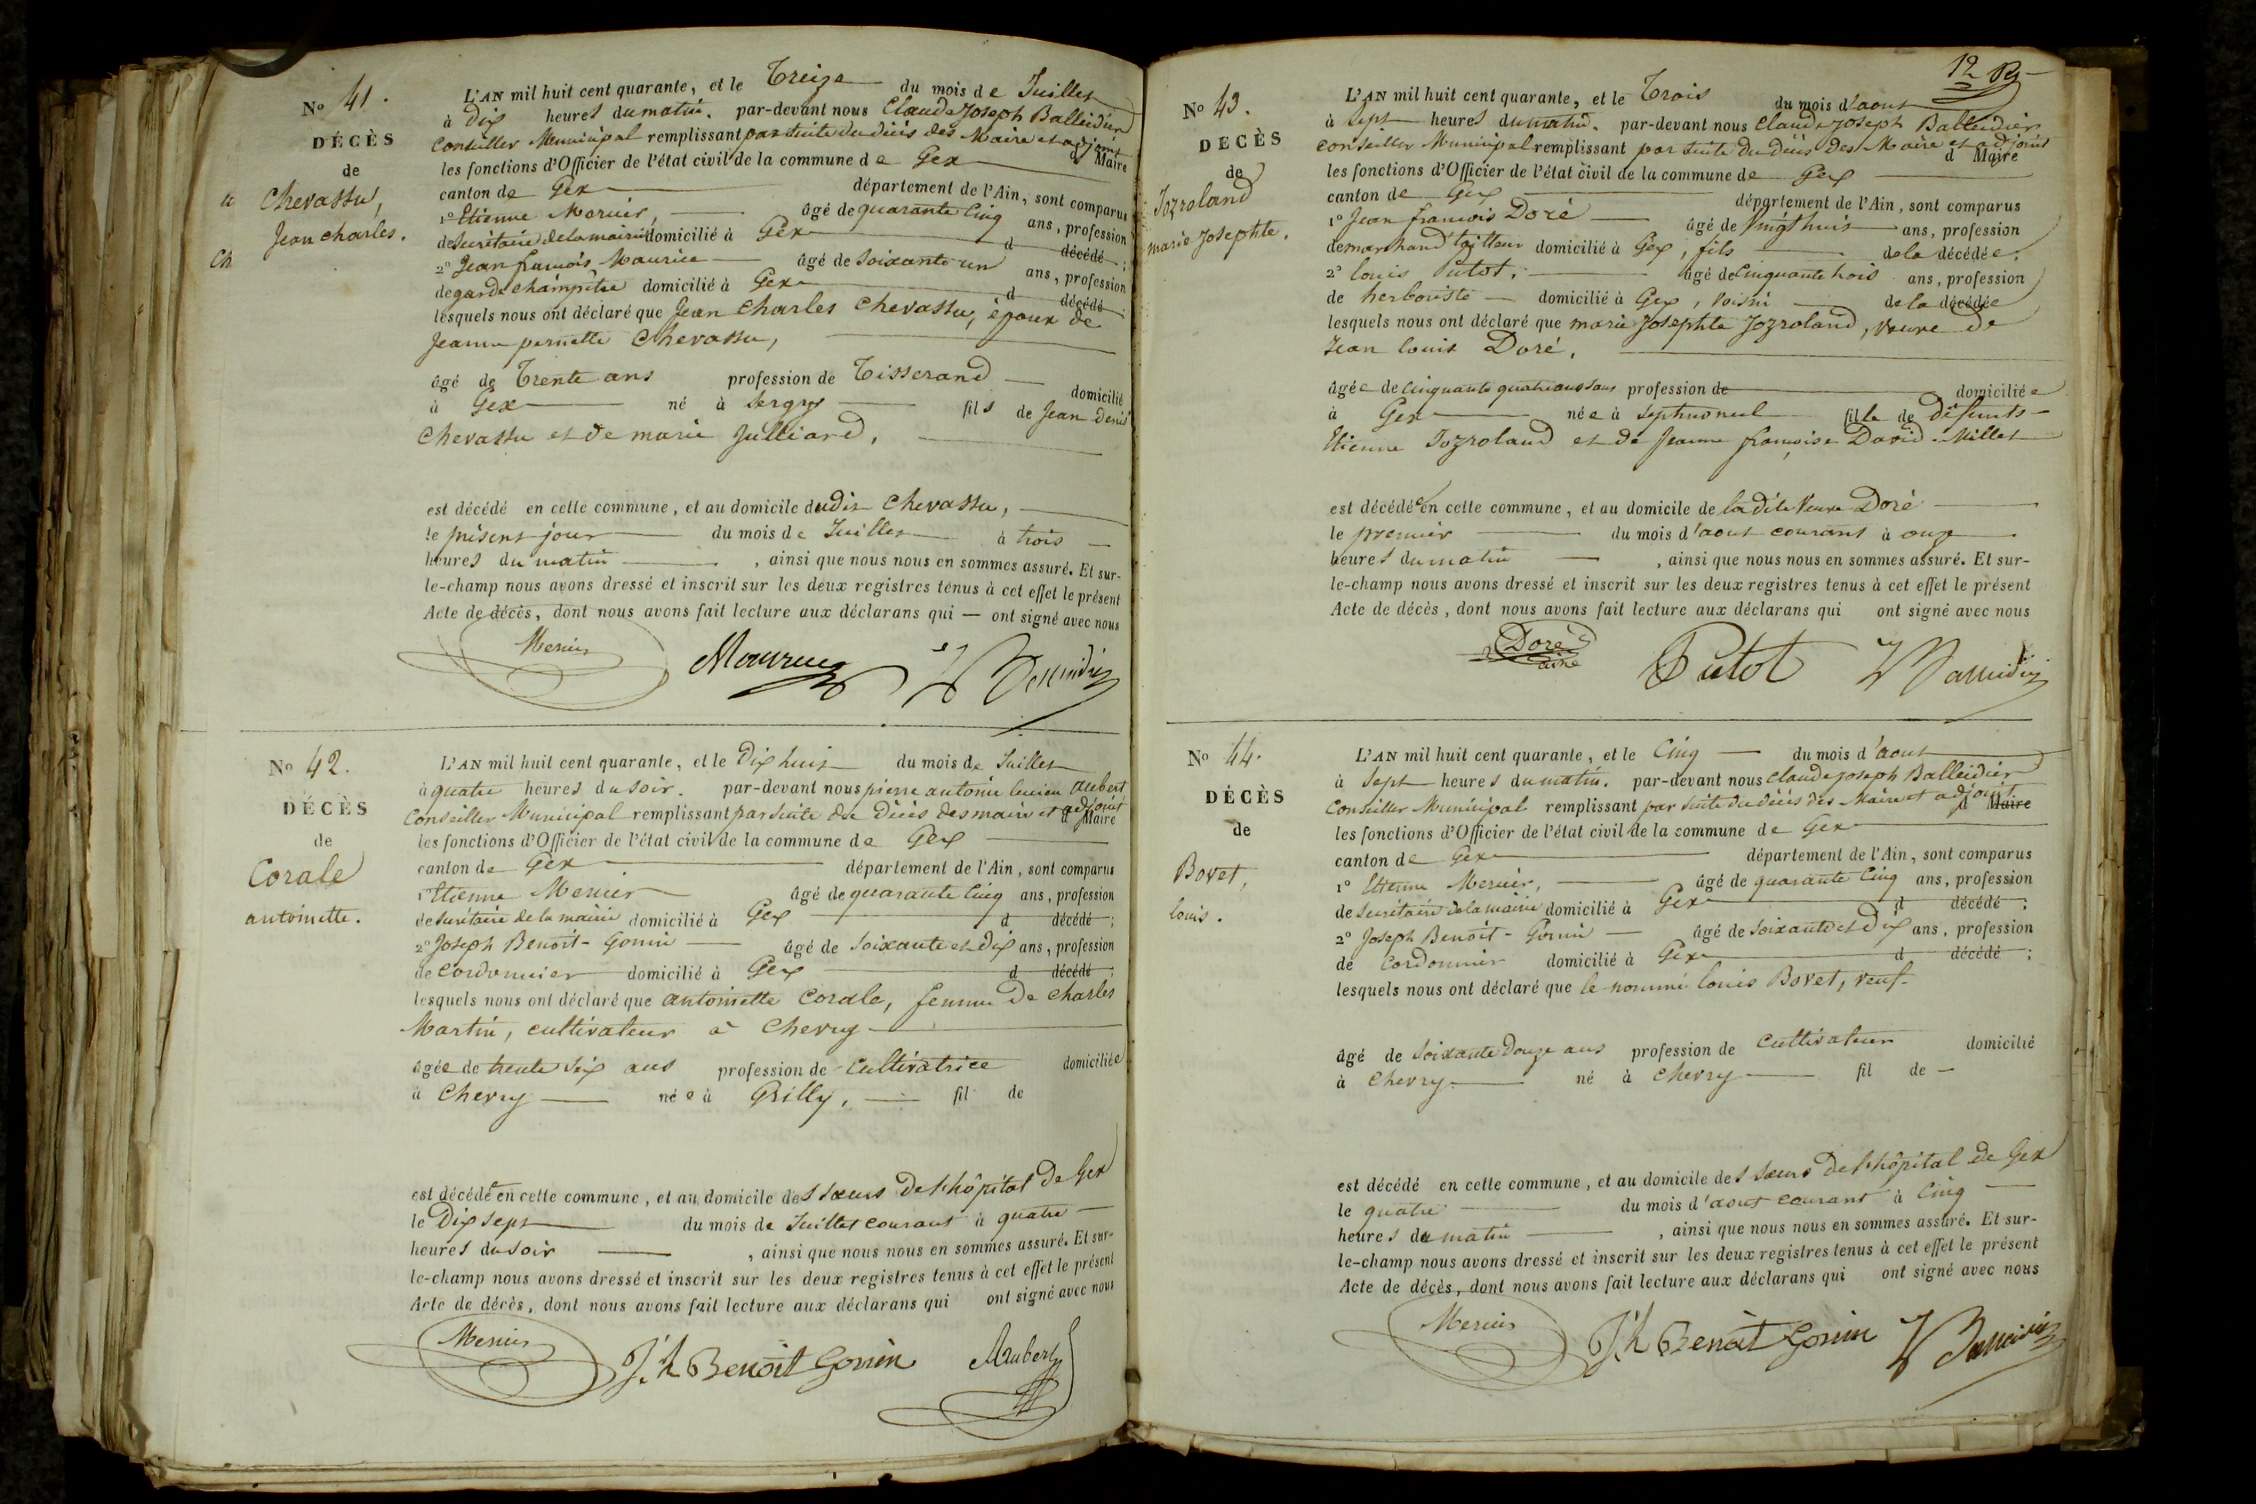 No 41.
DÉCÈS
de
Chevassu,
Jean Charles.
L'AN mil huit cent quarante, et le Treize du mois de Juillet
à dix heures du matin. par-devant nous Claude Joseph Balleidier
Conseiller Municipal remplissant par suite du décès des Maire et adjoint d Maire
les fonctions d'Officier de l'état civil de la commune de Gex
canton de Gex département de l'Ain, sont comparus
1º Etienne Mercier, âgé de quarante Cinq ans, profession
de Secrétaire de la mairie domicilié à Gex d décédé ;
2º Jean françois Maurice âgé de Soixante un ans, profession
de garde champêtre domicilié à Gex d décédé ;
lesquels nous ont déclaré que Jean Charles Chevassu, époux de
Jeanne pernette Chevassu,
âgé de Trente ans profession de Tisserand domicilié
à Gex né à Sergy fils de Jean Denis
Chevassu et de marie Julliard,
est décédé en cette commune, et au domicile dudit Chevassu,
le présent jour du mois de Juillet à trois
heures du matin , ainsi que nous nous en sommes assuré. Et sur-
le-champ nous avons dressé et inscrit sur les deux registres tenus à cet effet le présent
Acte de décès, dont nous avons fait lecture aux déclarans qui — ont signé avec nous
Mercier Maurice Balleidier
No 42.
DÉCÈS
de
Corale
antoinette.
L'AN mil huit cent quarante, et le Dix huit du mois de Juillet
à quatre heures du soir. par-devant nous pierre antoine lucien aubert
Conseiller Municipal remplissant par suite du Décès des maire et adjoint d Maire
les fonctions d'Officier de l'état civil de la commune de Gex
canton de Gex département de l'Ain, sont comparus
1º Etienne Mercier âgé de quarante Cinq ans, profession
de Secrétaire de la mairie domicilié à Gex d décédé ;
2º Joseph Benoit-Gonin âgé de Soixante et Dix ans, profession
de Cordonnier domicilié à Gex d décédé ;
lesquels nous ont déclaré que antoinette Corale, femme de Charles
Martin, cultivateur à Chevry
âgée de trente Six ans profession de Cultivatrice domiciliée
à Chevry née à Grilly, fil de
est décédée en cette commune, et au domicile des Sœurs de l'hôpital de Gex
le Dix Sept du mois de Juillet courant à quatre
heures du soir , ainsi que nous nous en sommes assuré. Et sur-
le-champ nous avons dressé et inscrit sur les deux registres tenus à cet effet le présent
Acte de décès, dont nous avons fait lecture aux déclarans qui ont signé avec nous
Mercier J.h Benoit Gonin Aubert
12
No 43.
DÉCÈS
de
Jozroland
marie Josephte.
L'AN mil huit cent quarante, et le Trois du mois d'aout
à Sept heures du matin. par-devant nous Claude Joseph Balleidier
Conseiller Municipal remplissant par suite du décès des Maire et adjoint d Maire
les fonctions d'Officier de l'état civil de la commune de Gex
canton de Gex département de l'Ain, sont comparus
1º Jean françois Doré âgé de Vingt huit ans, profession
de marchand tailleur domicilié à Gex, fils de la décédée ;
2º louis Putot, âgé de Cinquante trois ans, profession
de herboriste domicilié à Gex, voisin de la décédée
lesquels nous ont déclaré que marie Josephte Jozroland, veuve de
Jean louis Doré,
âgée de Cinquante quatre ans profession de domiciliée
à Gex née à Septmoncel fille de défunts
Etienne Jozroland et de Jeanne françoise David-Millet
est décédée en cette commune, et au domicile de ladite Veuve Doré
le premier du mois d'aout courant à onze
heures du matin , ainsi que nous nous en sommes assuré. Et sur-
le-champ nous avons dressé et inscrit sur les deux registres tenus à cet effet le présent
Acte de décès, dont nous avons fait lecture aux déclarans qui ont signé avec nous
Doré ainé Putot Balleidier
No 44.
DÉCÈS
de
Bovet,
louis.
L'AN mil huit cent quarante, et le Cinq du mois d'aout
à Sept heures du matin. par-devant nous Claude Joseph Balleidier
Conseiller Municipal remplissant par suite du décès des Maire et adjoint d Maire
les fonctions d'Officier de l'état civil de la commune de Gex
canton de Gex département de l'Ain, sont comparus
1º Etienne Mercier, âgé de quarante Cinq ans, profession
de Secrétaire de la mairie domicilié à Gex d décédé ;
2º Joseph Benoit-Gonin âgé de Soixante et Dix ans, profession
de Cordonnier domicilié à Gex d décédé ;
lesquels nous ont déclaré que le nommé louis Bovet, veuf
âgé de Soixante Douze ans profession de Cultivateur domicilié
à Chevry né à Chevry fil de
est décédé en cette commune, et au domicile des Sœurs de l'hôpital de Gex
le quatre du mois d'aout courant à Cinq
heures du matin , ainsi que nous nous en sommes assuré. Et sur-
le-champ nous avons dressé et inscrit sur les deux registres tenus à cet effet le présent
Acte de décès, dont nous avons fait lecture aux déclarans qui ont signé avec nous
Mercier J.h Benoit Gonin Balleidier